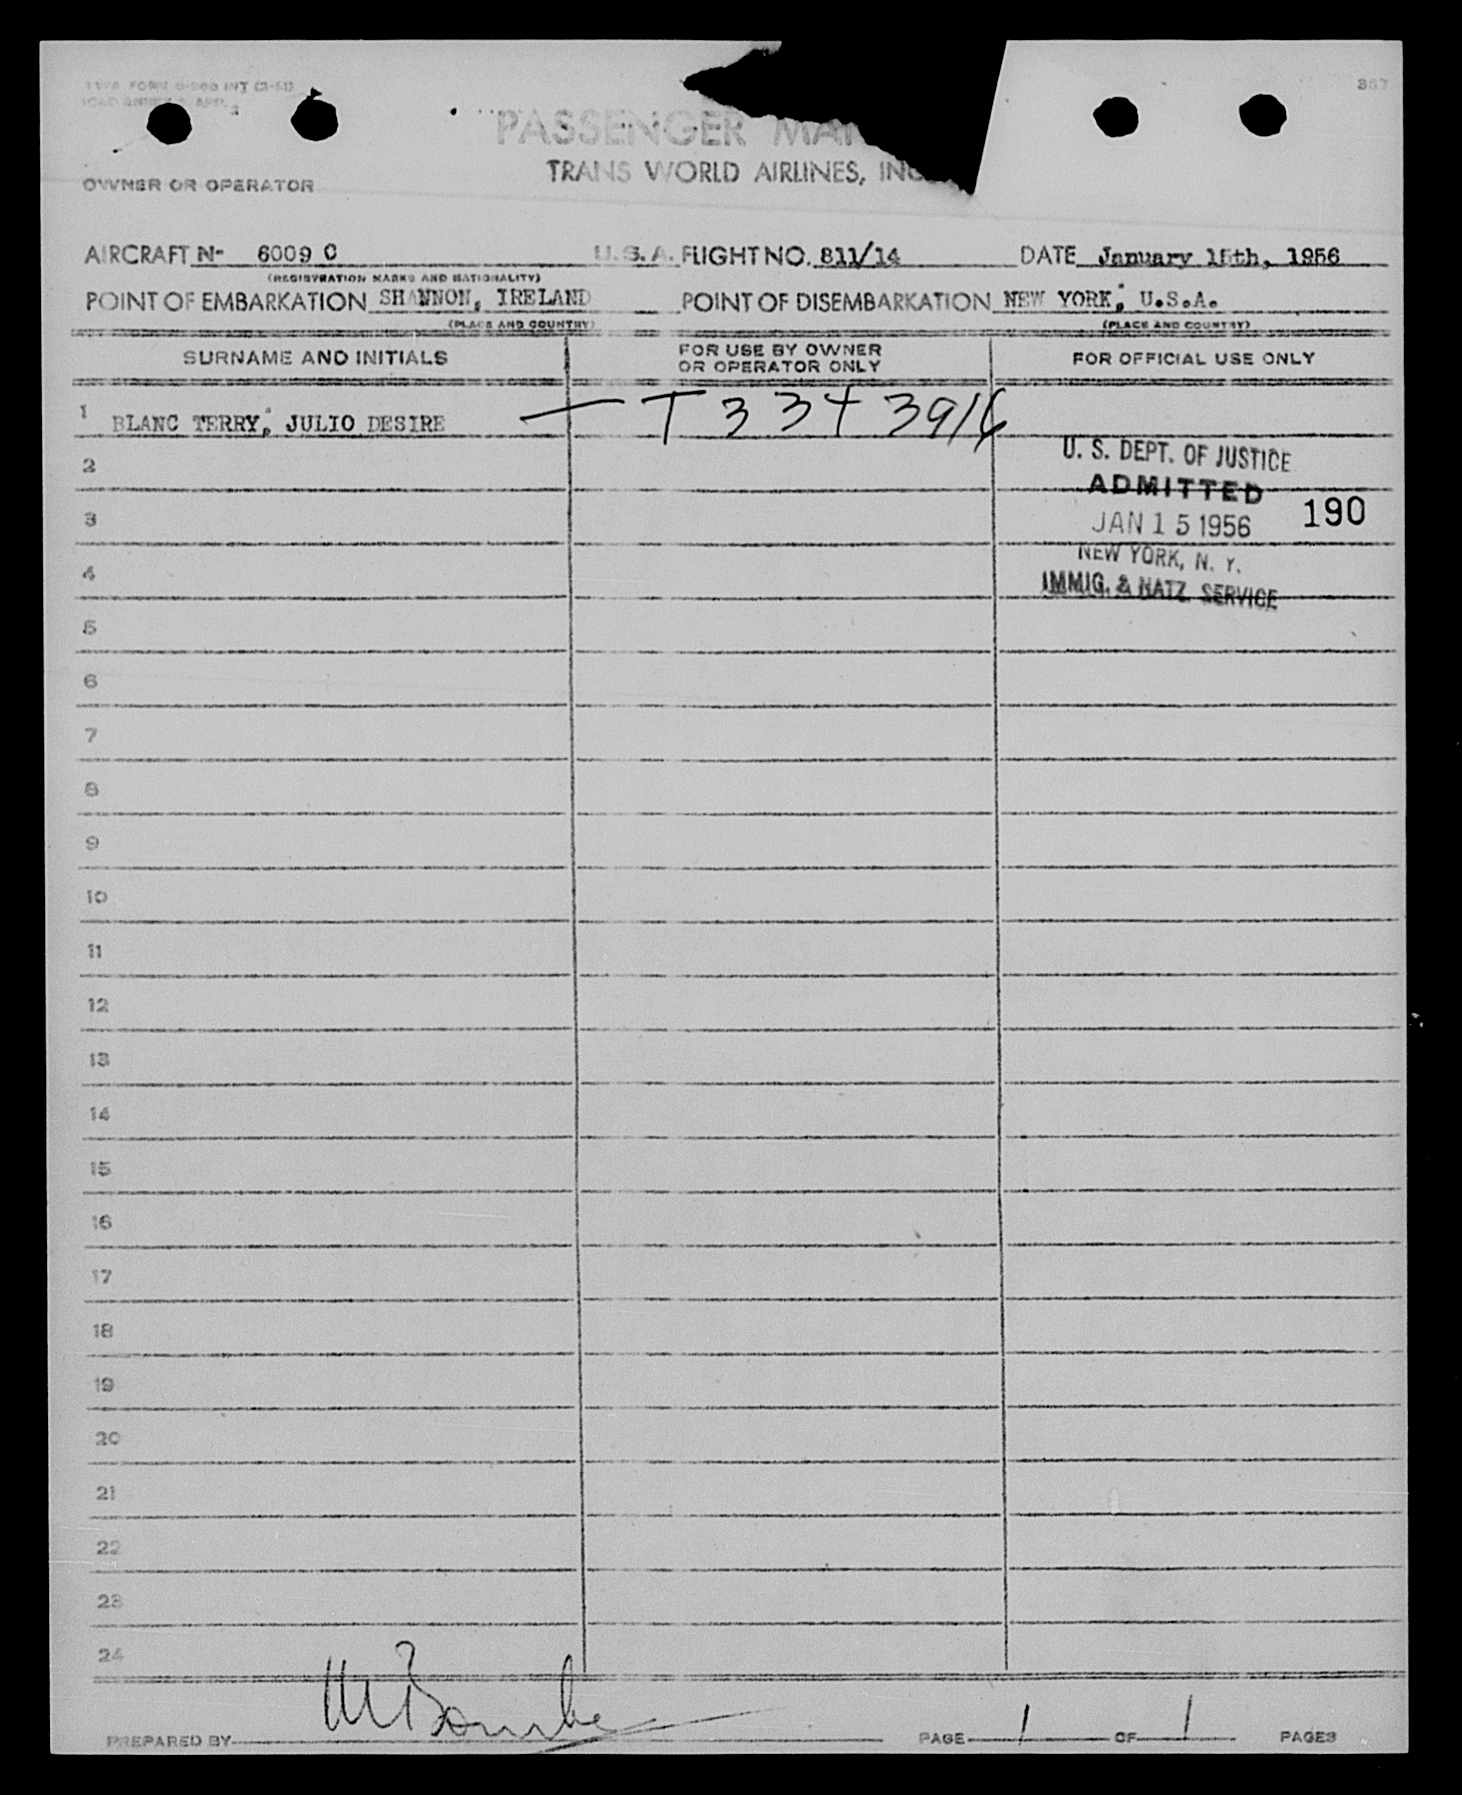 367
PASSENGER MA
TRANS WORLD AIRLINES, INC
OWNER OR OPERATOR
AIRCRAFT N- 6009 C U. S. A. FLIGHT NO. 811/14 DATE January 15th, 1956
(REGISTRATION MARKS AND NATIONALITY)
POINT OF EMBARKATION SHANNON, IRELAND POINT OF DISEMBARKATION NEW YORK, U.S.A.
(PLACE AND COUNTRY) (PLACE AND COUNTRY)
SURNAME AND INITIALS FOR USE BY OWNER OR OPERATOR ONLY FOR OFFICIAL USE ONLY
1 BLANC TERRY, JULIO DESIRE — T 334 3916
U. S. DEPT. OF JUSTICE
2
ADMITTED
3
JAN 15 1956 190
NEW YORK, N. Y.
4
IMMIG. & NATZ. SERVICE
5
6
7
8
9
10
11
12
13
14
15
16
17
18
19
20
21
22
23
24
PREPARED BY PAGE 1 OF 1 PAGES